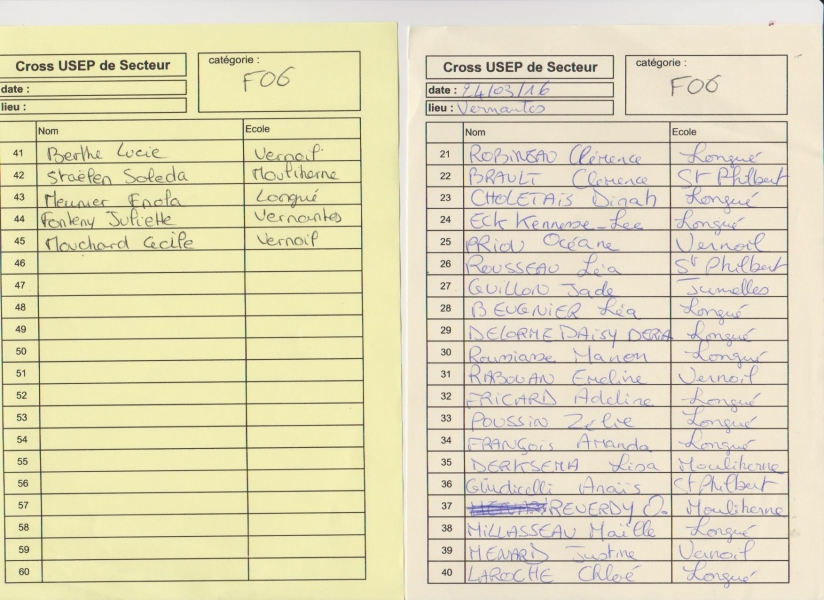 Cross USEP de Secteur
catégorie :
F06
date :
lieu :
Nom Ecole
41 Berthe Lucie Vernoil
42 Staëfen Soleda Mouliherne
43 Meunier Enola Longué
44 Fonteny Juliette Vernantes
45 Mouchard Cecile Vernoil
46
47
48
49
50
51
52
53
54
55
56
57
58
59
60
Cross USEP de Secteur
catégorie :
F06
date : 24/03/16
lieu : Vernantes
Nom Ecole
21 ROBINEAU Clémence Longué
22 BRAULT Clémence St Philbert
23 CHOLETAIS Dinah Longué
24 ECK Kennesse-Lee Longué
25 PRIOU Océane Vernoil
26 ROUSSEAU Léa St Philbert
27 GUILLON Jade Jumelles
28 BEUGNIER Léa Longué
29 DELORME DAISY DERIA Longué
30 Manon Longué
31 RABOUAN Emeline Vernoil
32 FRICARD Adeline Longué
33 POUSSIN Zélie Longué
34 FRANÇOIS Amanda Longué
35 DERKSEMA Lisa Mouliherne
36 Giudicelli Anaïs St Philbert
37 REVERDY O. Mouliherne
38 MILLASSEAU Maëlle Longué
39 MENARD Justine Vernoil
40 LAROCHE Chloé Longué